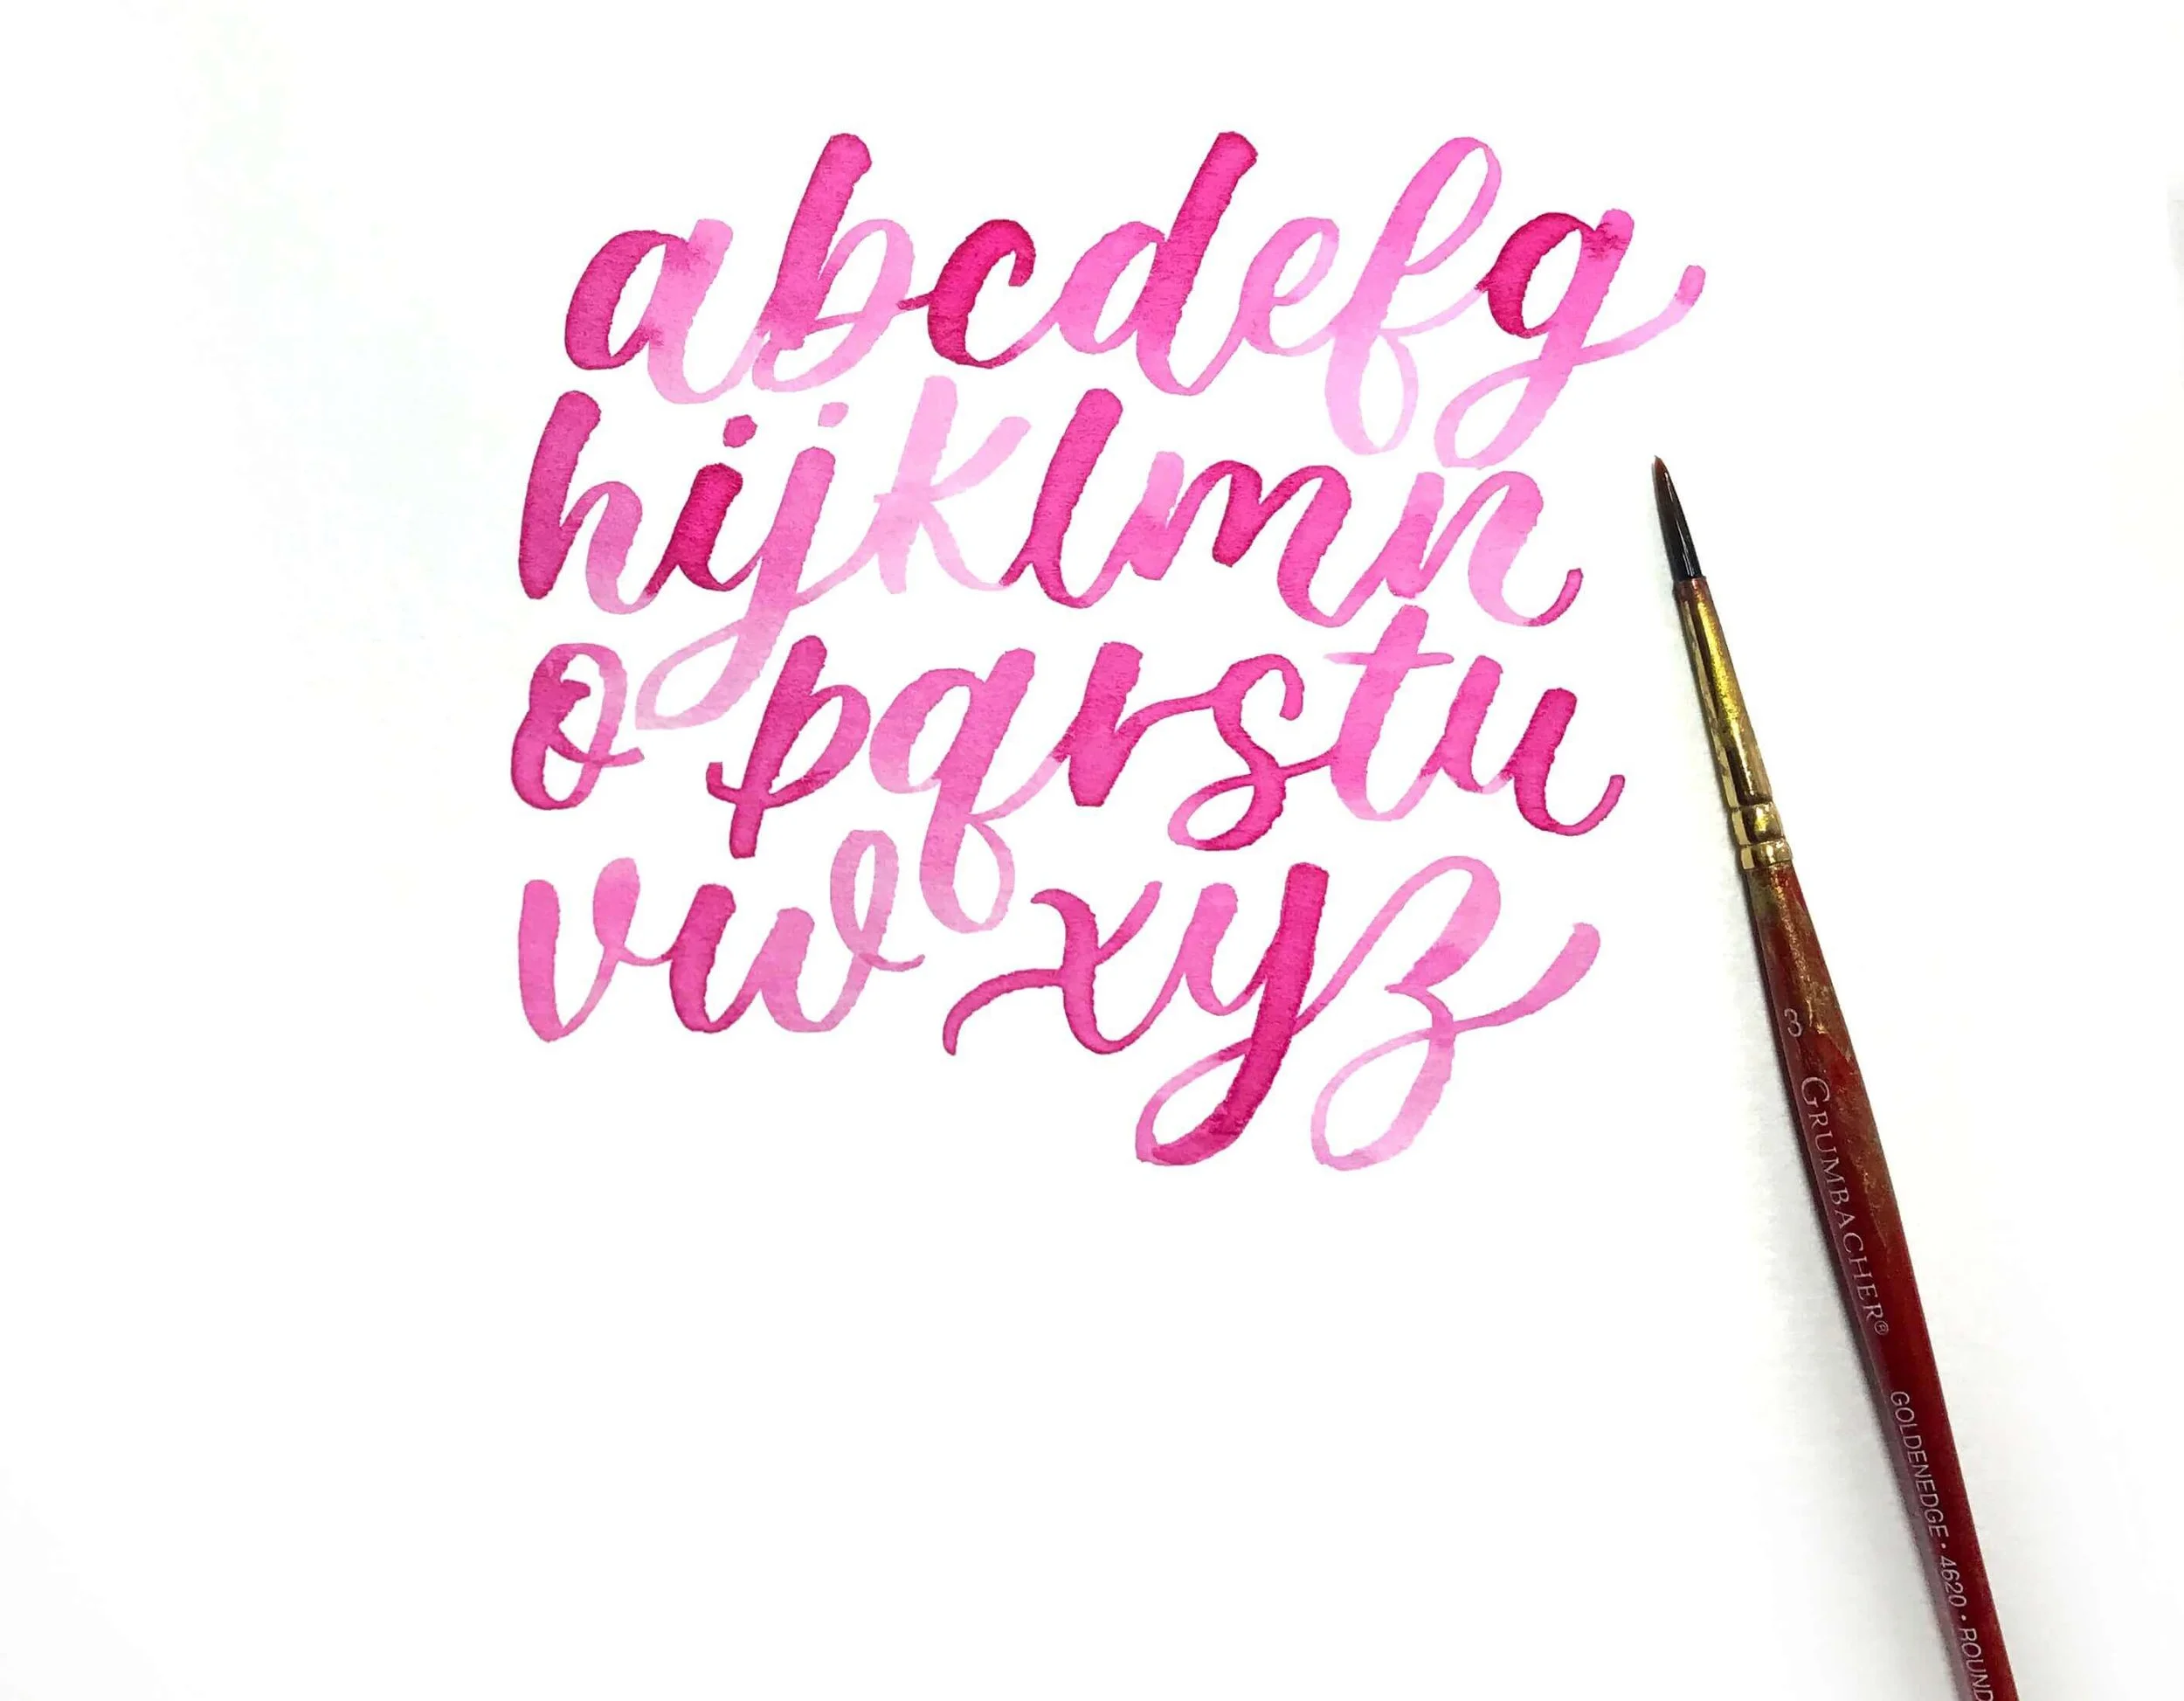 abcdefg
hijklmn
opqrstu
vwxyz
3 GRUMBACHER® GOLDENEDGE • 4620 • ROUND